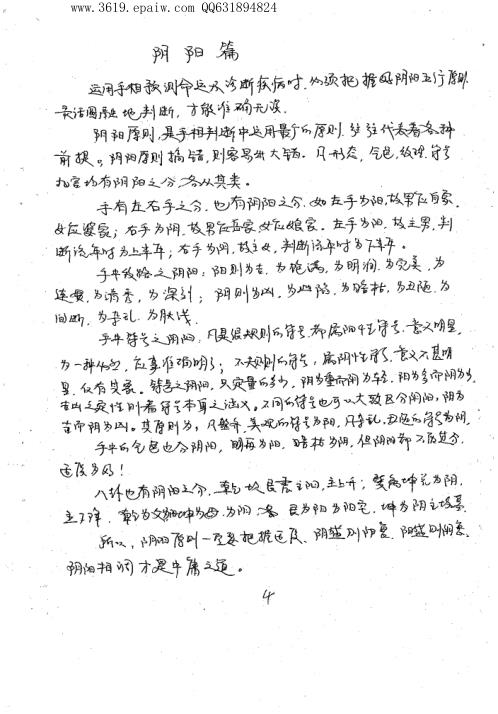 www.3619.epaiw.com QQ631894824
阴阳篇
运用手相预测命运及诊断疾病时,必须把握好阴阳五行原则
灵活圆融地判断,才能准确无误。
阴阳原则,是手相判断中运用最广的原则,往往代表着各种
前提。阴阳原则搞错,则容易出大错。凡形态,气色,纹理,符号
九宫均有阴阳之分,各从其类。
手有左右手之分,也有阴阳之分,如左手为阳,故男应自家,
女应婆家;右手为阴,故男应岳家女应娘家。左手为阳,故主男,判
断流年时为上半年;右手为阴,故主女,判断流年时为下半年。
手中纹路之阴阳:阳则为吉,为饱满,为明润,为完美,为
连贯,为清秀,为深刻;阴则为凶,为凹陷,为暗枯,为丑陋,为
间断,为杂乱,为肤浅。
手中符号之阴阳,凡是很规则的符号都属阳性符号,意义明显,
为一种,应事准确明了;不规则的符号,属阴性符号,意义不甚明
显,仅有其象。符号之阴阳,只定量的多少,阳为重而阴为轻,阳为多而阴为少,
吉凶之定性则看符号本身之涵义。不同的符号也可以大致区分阴阳,阳为
吉而阴为凶。其原则为:凡整齐,美观的符号为阳,凡杂乱,丑陋的符号为阴,
手中的气色也分阴阳,明润为阳,暗枯为阴,但阴阳都不宜过分,
适度为好!
八卦也有阴阳之分,乾坎艮震主阳,主上升;巽离坤兑为阴,
主下降,乾为父坤为母,为阴,艮为阳为阳宅,坤为阴主坟墓。
所以,阴阳原则一定要把握适度,阴盛则阳衰,阳盛则阴衰,
阴阳相调才是中庸之道。
4